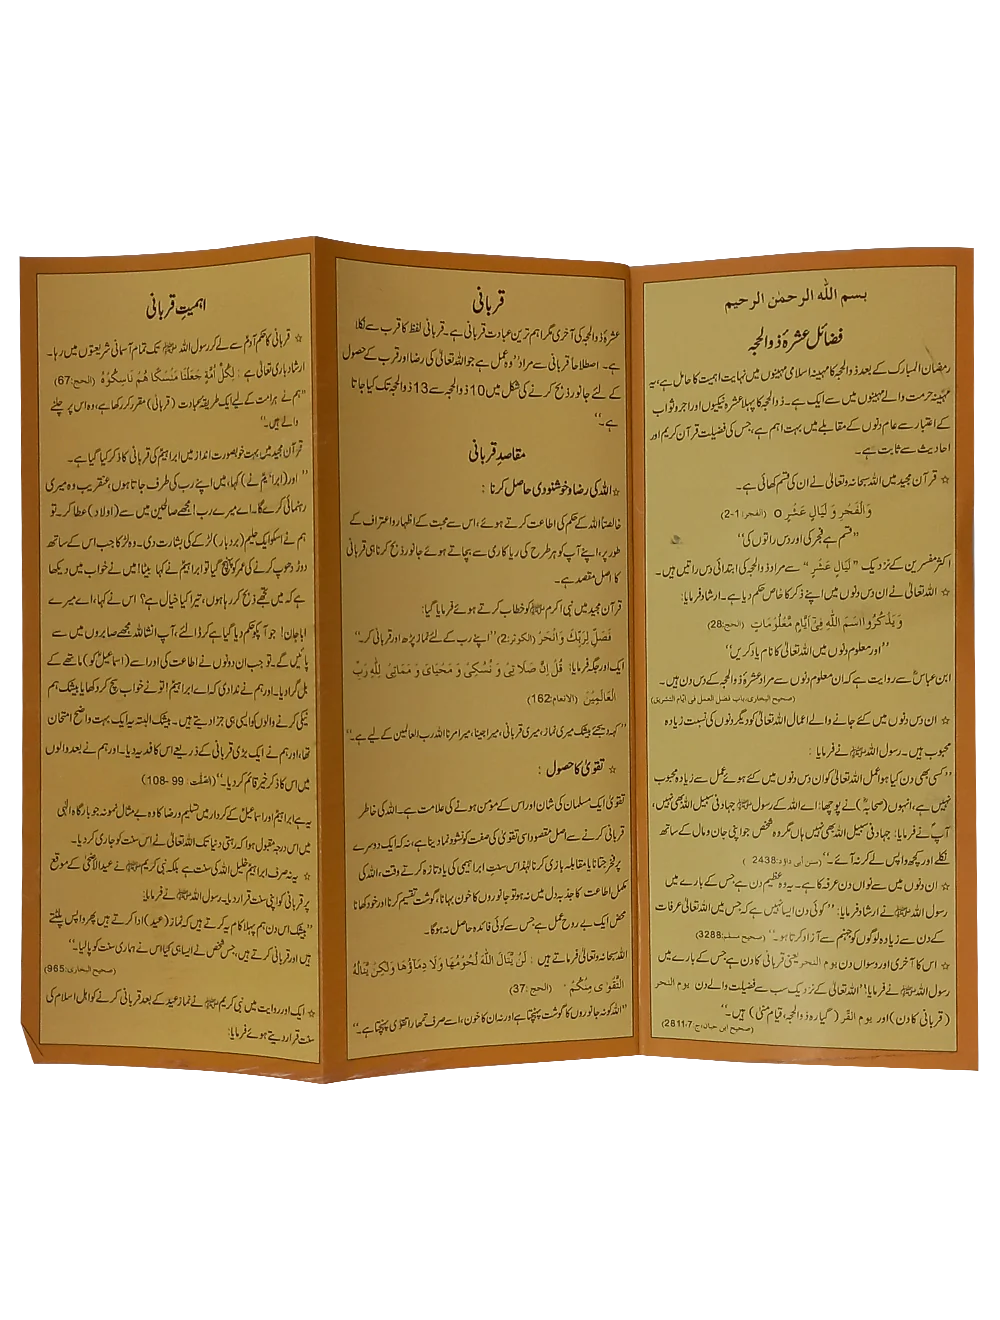 بسم الله الرحمٰن الرحیم
فضائل عشرۂ ذوالحجہ
رمضان المبارک کے بعد ذوالحجہ کا مہینہ اسلامی مہینوں میں نہایت اہمیت کا حامل ہے، یہ
مہینہ حرمت والے مہینوں میں سے ایک ہے۔ ذوالحجہ کا پہلا عشرہ نیکیوں اور اجر و ثواب
کے اعتبار سے عام دنوں کے مقابلے میں بہت اہم ہے، جس کی فضیلت قرآن کریم اور
احادیث سے ثابت ہے۔
☆ قرآن مجید میں اللہ سبحانہ وتعالیٰ نے ان کی قسم کھائی ہے۔
وَالْفَجْرِ وَ لَيَالٍ عَشْرٍ o (الفجر:1-2)
”قسم ہے فجر کی اور دس راتوں کی“
اکثر مفسرین کے نزدیک ” لَيَالٍ عَشْرٍ “ سے مراد ذوالحجہ کی ابتدائی دس راتیں ہیں۔
☆ اللہ تعالیٰ نے ان دس دنوں میں اپنے ذکر کا خاص حکم دیا ہے۔ ارشاد فرمایا:
وَيَذْكُرُوا اسْمَ اللّٰهِ فِىْٓ اَيَّامٍ مَّعْلُوْمَاتٍ (الحج:28)
”اور معلوم دنوں میں اللہ تعالیٰ کا نام یاد کریں“
ابن عباسؓ سے روایت ہے کہ ان معلوم دنوں سے مراد عشرۂ ذوالحجہ کے دس دن ہیں۔
(صحیح البخاری، باب فضل العمل فی ایام التشریق)
☆ ان دس دنوں میں کئے جانے والے اعمال اللہ تعالیٰ کو دیگر دنوں کی نسبت زیادہ
محبوب ہیں۔ رسول اللہ ﷺ نے فرمایا :
”کسی بھی دن کیا ہوا عمل اللہ تعالیٰ کو ان دس دنوں میں کئے ہوئے عمل سے زیادہ محبوب
نہیں ہے، انہوں (صحابہؓ) نے پوچھا: اے اللہ کے رسول ﷺ جہاد فی سبیل اللہ بھی نہیں،
آپؐ نے فرمایا: جہاد فی سبیل اللہ بھی نہیں ہاں مگر وہ شخص جو اپنی جان و مال کے ساتھ
نکلے اور کچھ واپس لے کر نہ آئے۔“ (سنن ابی داؤد: 2438)
☆ ان دنوں میں سے نواں دن عرفہ کا ہے۔ یہ وہ عظیم دن ہے جس کے بارے میں
رسول اللہ ﷺ نے ارشاد فرمایا: ”کوئی دن ایسا نہیں ہے کہ جس میں اللہ تعالیٰ عرفات
کے دن سے زیادہ لوگوں کو جہنم سے آزاد کرتا ہو۔“ (صحیح مسلم: 3288)
☆ اس کا آخری اور دسواں دن یوم النحر یعنی قربانی کا دن ہے جس کے بارے میں
رسول اللہ ﷺ نے فرمایا: ”اللہ تعالیٰ کے نزدیک سب سے فضیلت والے دن یوم النحر
(قربانی کا دن) اور یوم القر (گیارہ ذوالحجہ، قیام منیٰ) ہیں۔“
(صحیح ابن حبان، ج 7: 2811)
قربانی
عشرۂ ذوالحجہ کی آخری مگر اہم ترین عبادت قربانی ہے۔ قربانی لفظ کا قرب سے نکلا
ہے۔ اصطلاحاً قربانی سے مراد ”وہ عمل ہے جو اللہ تعالیٰ کی رضا اور قرب کے حصول
کے لئے جانور ذبح کرنے کی شکل میں 10 ذوالحجہ سے 13 ذوالحجہ تک کیا جاتا
ہے۔“
مقاصدِ قربانی
☆ اللہ کی رضا و خوشنودی حاصل کرنا :
خالصتاً اللہ کے حکم کی اطاعت کرتے ہوئے، اس سے محبت کے اظہار و اعتراف کے
طور پر، اپنے آپ کو ہر طرح کی ریا کاری سے بچاتے ہوئے جانور ذبح کرنا ہی قربانی
کا اصل مقصد ہے۔
قرآن مجید میں نبی اکرم ﷺ کو خطاب کرتے ہوئے فرمایا گیا:
فَصَلِّ لِرَبِّكَ وَانْحَرْ (الکوثر:2) ”اپنے رب کے لئے نماز پڑھ اور قربانی کر۔“
ایک اور جگہ فرمایا: قُلْ اِنَّ صَلَاتِىْ وَ نُسُكِىْ وَ مَحْيَاىَ وَ مَمَاتِىْ لِلّٰهِ رَبِّ
الْعَالَمِيْنَ (الانعام: 162)
”کہہ دیجئے بیشک میری نماز، میری قربانی، میرا جینا، میرا مرنا اللہ رب العالمین کے لیے ہے۔“
☆ تقویٰ کا حصول :
تقویٰ ایک مسلمان کی شان اور اس کے مومن ہونے کی علامت ہے۔ اللہ کی خاطر
قربانی کرنے سے اصل مقصود اسی تقویٰ کی صفت کو نشوونما دینا ہے، نہ کہ ایک دوسرے
پر فخر جتانا یا مقابلہ بازی کرنا لہٰذا اس سنتِ ابراہیمی کی یاد تازہ کرتے وقت، اللہ کی
مکمل اطاعت کا جذبہ دل میں نہ ہو تو جانوروں کا خون بہانا، گوشت تقسیم کرنا اور خود کھانا
محض ایک بے روح عمل ہے جس سے کوئی فائدہ حاصل نہ ہوگا۔
اللہ سبحانہ وتعالیٰ فرماتے ہیں : لَنْ يَّنَالَ اللّٰهَ لُحُوْمُهَا وَلَا دِمَآؤُهَا وَلٰكِنْ يَّنَالُهُ
التَّقْوٰى مِنْكُمْ (الحج: 37)
”اللہ کو نہ جانوروں کا گوشت پہنچتا ہے اور نہ ان کا خون، اسے صرف تمھارا تقویٰ پہنچتا ہے۔“
اہمیتِ قربانی
☆ قربانی کا حکم آدمؑ سے لے کر رسول اللہ ﷺ تک تمام آسمانی شریعتوں میں رہا۔
ارشاد باری تعالیٰ ہے : لِكُلِّ اُمَّةٍ جَعَلْنَا مَنْسَكًا هُمْ نَاسِكُوْهُ (الحج: 67)
”ہم نے ہر امت کے لیے ایک طریقہ عبادت (قربانی) مقرر کر رکھا ہے، وہ اس پر چلنے
والے ہیں۔“
قرآن مجید میں بہت خوبصورت انداز میں ابراہیمؑ کی قربانی کا ذکر کیا گیا ہے۔
”اور (ابراہیمؑ نے) کہا، میں اپنے رب کی طرف جاتا ہوں، عنقریب وہ میری
رہنمائی کرے گا۔ اے میرے رب! مجھے صالحین میں سے (اولاد) عطا کر۔ تو
ہم نے اسکو ایک حلیم (بردبار) لڑکے کی بشارت دی۔ وہ لڑکا جب اس کے ساتھ
دوڑ دھوپ کرنے کی عمر کو پہنچ گیا تو ابراہیمؑ نے کہا بیٹا! میں نے خواب میں دیکھا
ہے کہ میں تجھے ذبح کر رہا ہوں، تیرا کیا خیال ہے؟ اس نے کہا، اے میرے
ابا جان! جو آپکو حکم دیا گیا ہے کر ڈالئے، آپ انشاللہ مجھے صابروں میں سے
پائیں گے۔ تو جب ان دونوں نے اطاعت کی اور اسے (اسماعیلؑ کو) ماتھے کے
بل گرا دیا۔ اور ہم نے ندا دی کہ اے ابراہیم! تو نے خواب سچ کر دکھایا بیشک ہم
نیکی کرنے والوں کو ایسی ہی جزا دیتے ہیں۔ بیشک البتہ یہ ایک بہت واضح امتحان
تھا، اور ہم نے ایک بڑی قربانی کے ذریعے اس کا فدیہ دیا۔ اور ہم نے بعد والوں
میں اس کا ذکر خیر قائم کر دیا۔“ (الصّٰفّٰت: 99 -108)
یہ ہے ابراہیمؑ اور اسماعیلؑ کے کردار میں تسلیم و رضا کا وہ بے مثال نمونہ جو بارگاہ الٰہی
میں اس درجہ مقبول ہوا کہ رہتی دنیا تک اللہ تعالیٰ نے اس سنت کو جاری کر دیا۔
☆ یہ نہ صرف ابراہیم خلیل اللہ کی سنت ہے بلکہ نبی کریم ﷺ نے عید الاضحیٰ کے موقع
پر قربانی کو اپنی سنت قرار دیا۔ رسول اللہ ﷺ نے فرمایا:
”بیشک اس دن ہم پہلا کام یہ کرتے ہیں کہ نماز (عید) ادا کرتے ہیں پھر واپس پلٹتے
ہیں اور قربانی کرتے ہیں، جس شخص نے ایسا ہی کیا اس نے ہماری سنت کو پالیا۔“
(صحیح البخاری: 965)
☆ ایک اور روایت میں نبی کریم ﷺ نے نماز عید کے بعد قربانی کرنے کو اہل اسلام کی
سنت قرار دیتے ہوئے فرمایا: